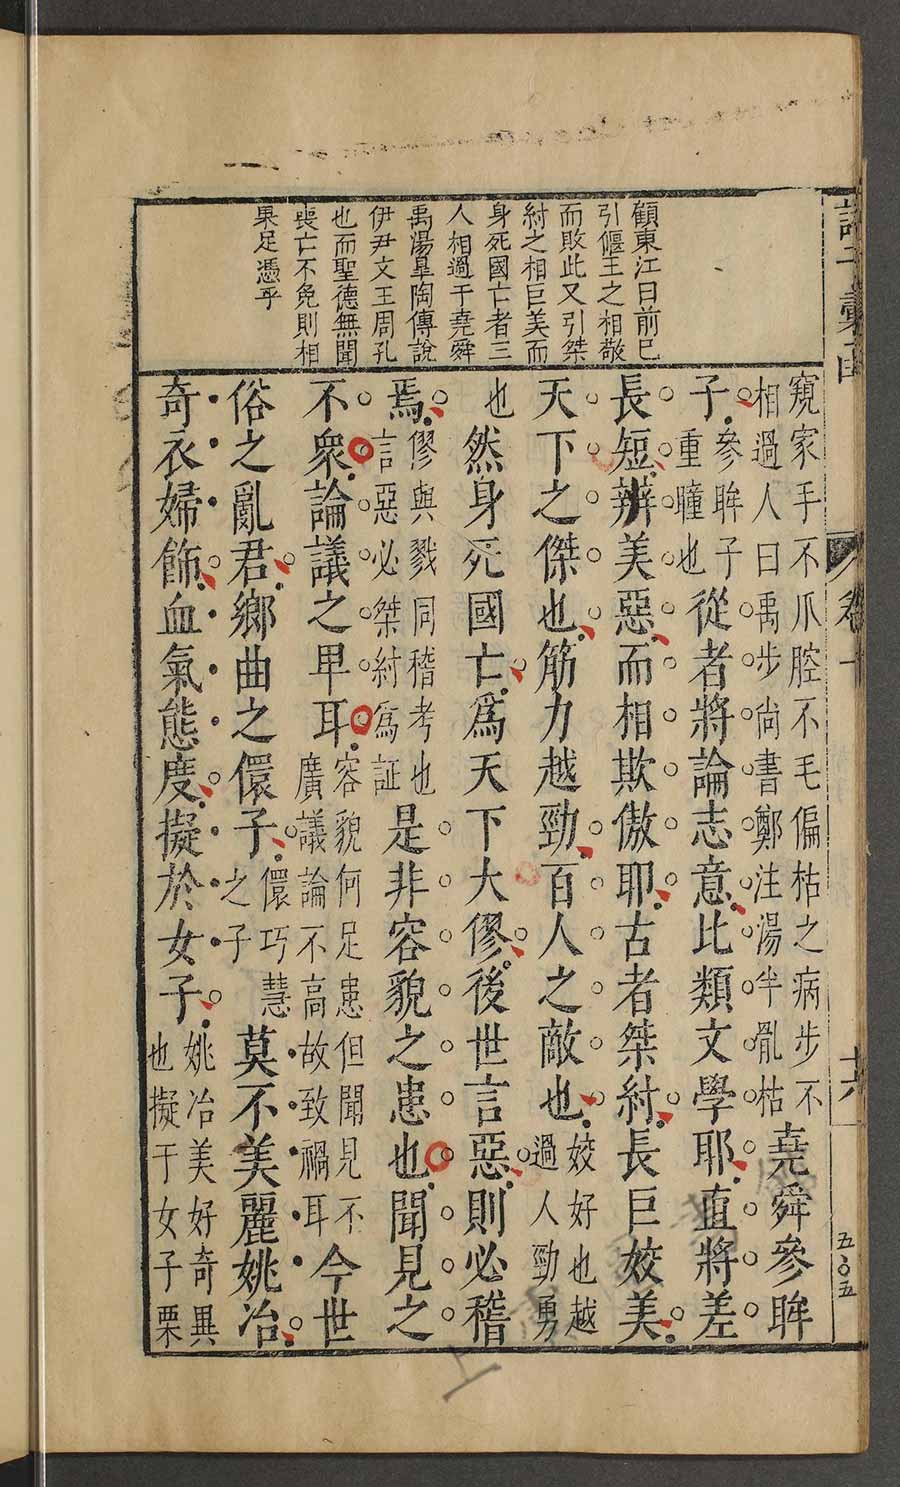 顧東江曰前已
引偃王之相敬
而敗此又引桀
紂之相巨美而
身死國亡者三
人相過于堯舜
禹湯皐陶傳說
伊尹文王周孔
也而聖德無聞
喪亡不免則相
果足憑乎
窺家手不爪腔不毛偏枯之病步不
相過人曰禹步尚書鄭注湯半枯
堯舜參眸
子參眸子
重瞳也
從者將論志意比類文學耶直將差
長短辨美惡而相欺傲耶古者桀紂長巨姣美
天下之傑也筋力越勁百人之敵也姣好也越
過人勁勇
也然身死國亡爲天下大僇後世言惡則必稽
焉僇與戮同稽考也
言惡必桀紂爲証
是非容貌之患也聞見之
不衆論議之卑耳容貌何足患但聞見不
廣議論不高故致禍耳
今世
俗之亂君鄉曲之儇子儇巧慧
之子
莫不美麗姚冶
奇衣婦飾血氣態度擬於女子姚冶美好奇異
也擬于女子栗
五〇五